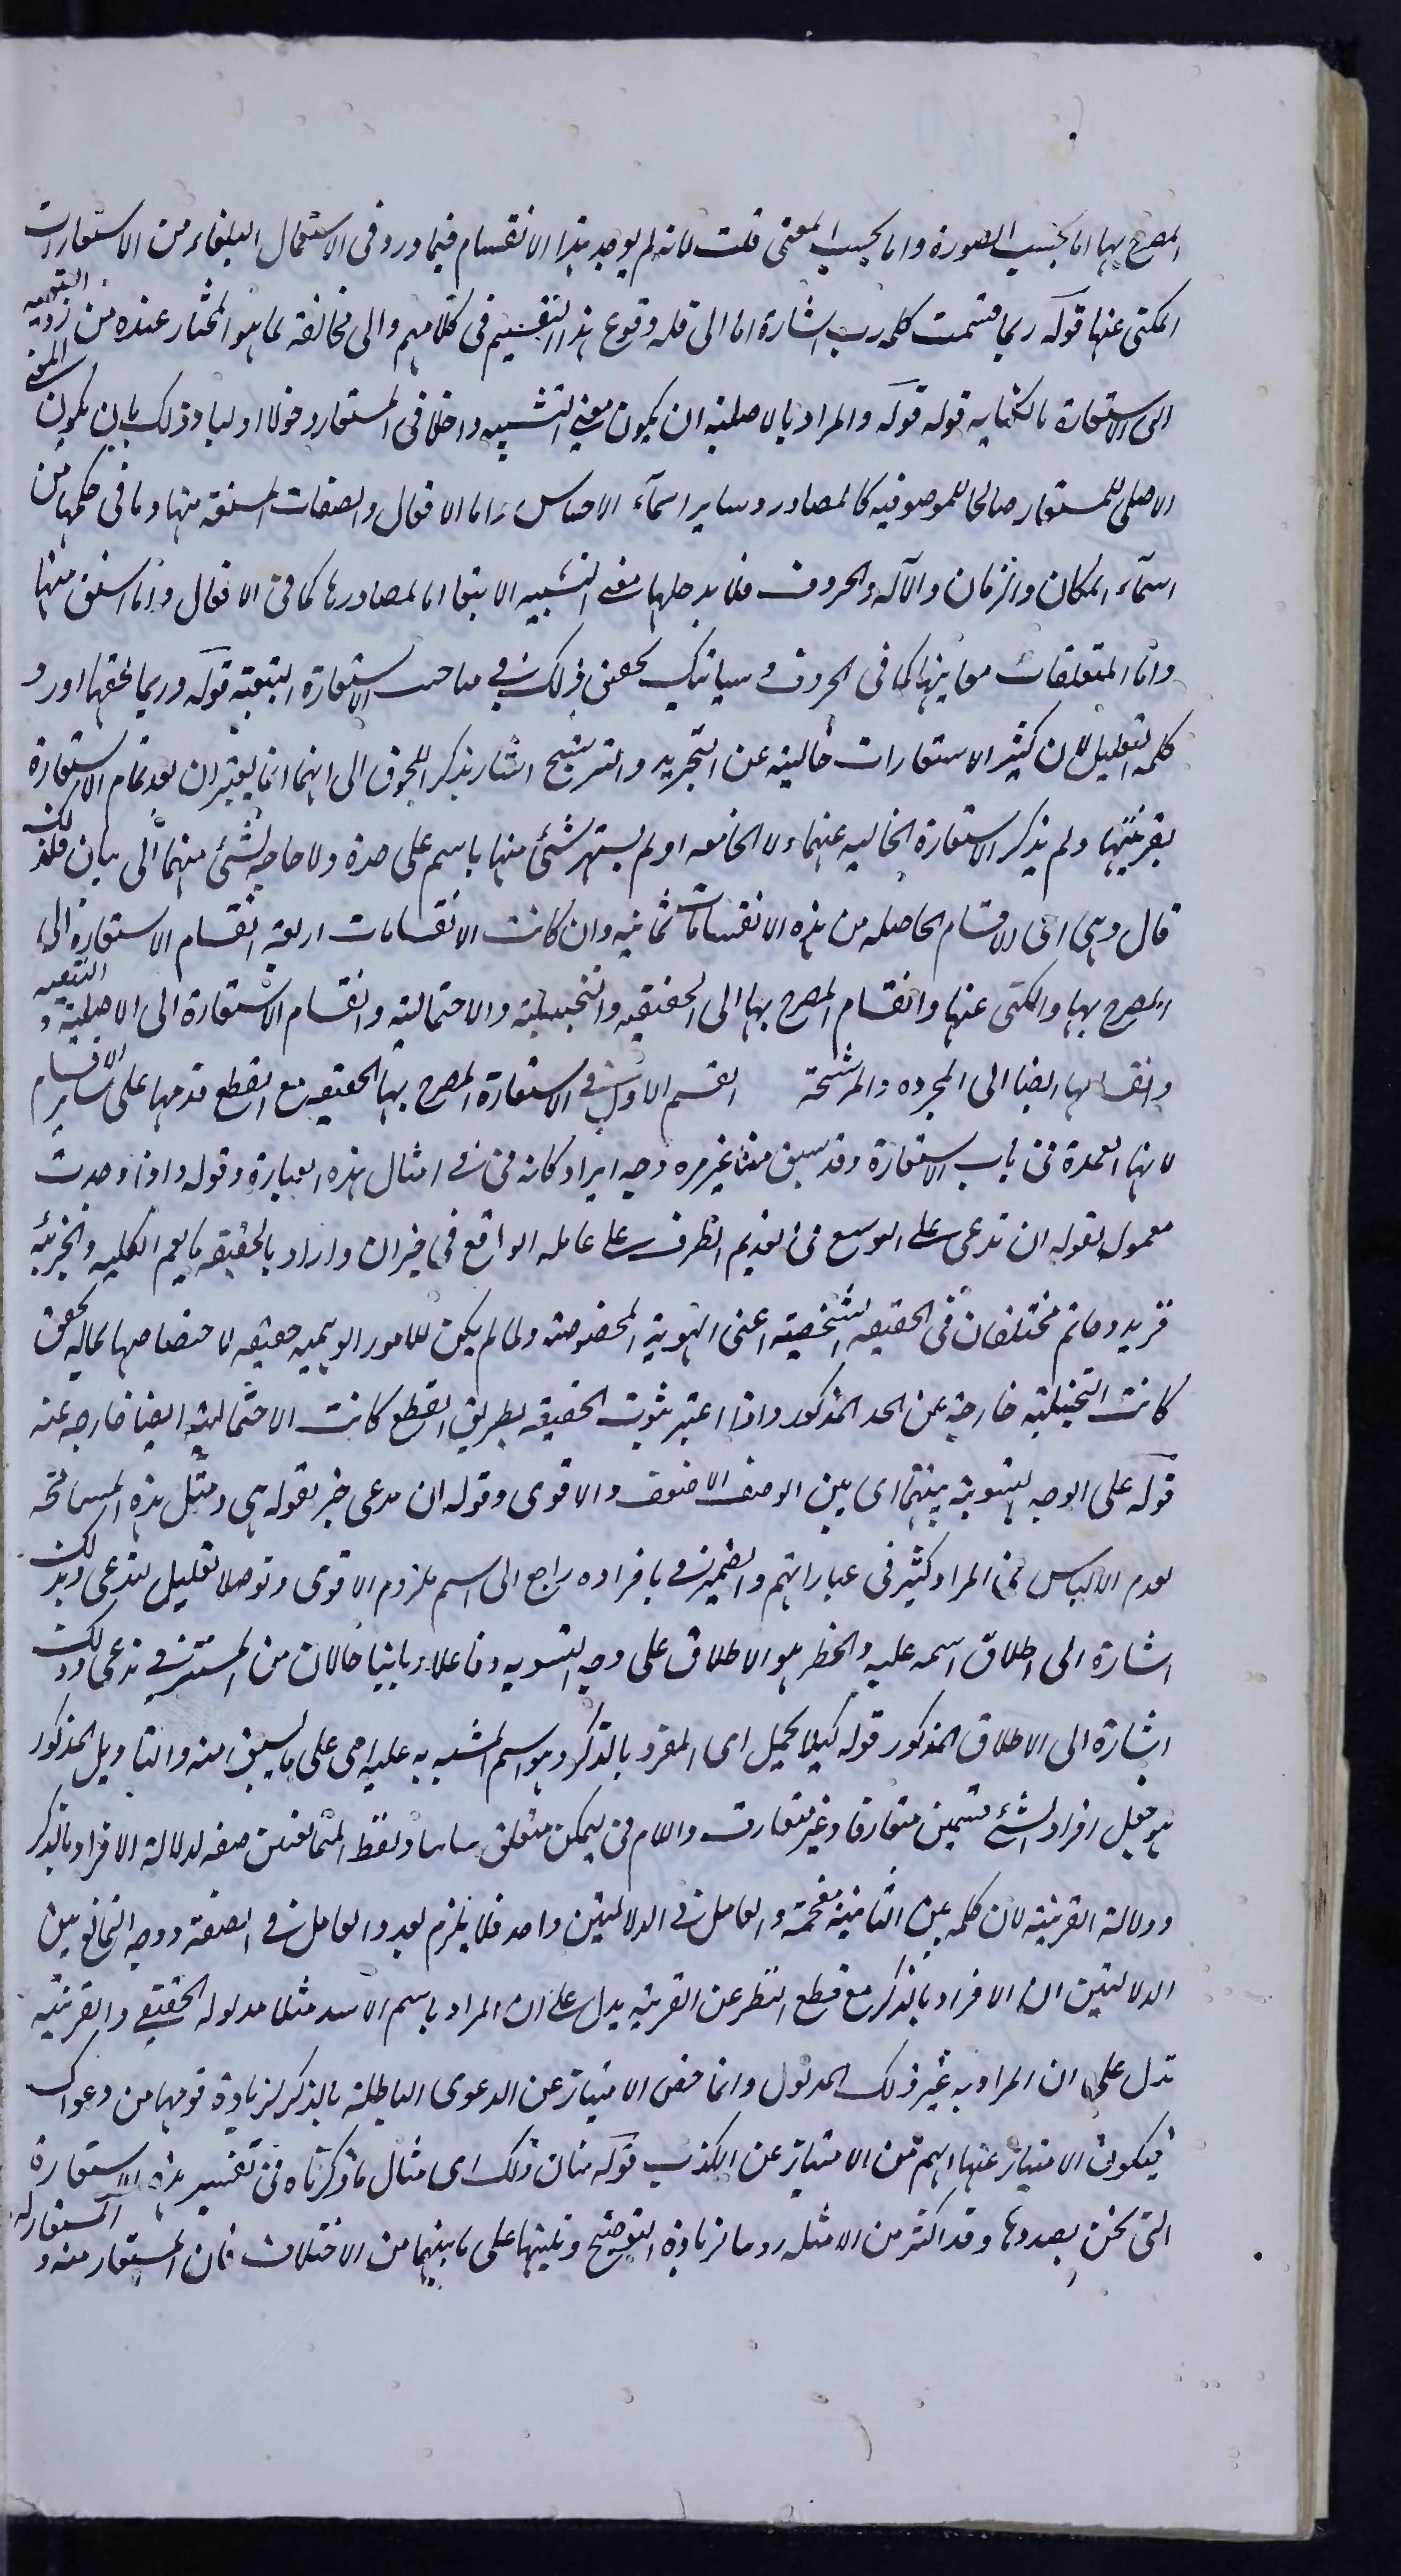 المصرح بها اما بحسب الصورة واما بحسب المعنى قلت لانه لم يوجد هذا الانقسام فيما ورد فى الاستعمال البلغاء من الاستعارات
المكنى عنها قوله ربما قسمت كلمه رب اشارة اما الى قله وقوع هذا التقسيم فى كلامهم والى مخالفة لما هو المختار عنده من رد التبعيه
الى الاستعارة بالكنايه قوله قوله والمراد بالاصلية ان يكون معنى التشبيه داخلا فى المستعار دخولا اوليا وذلك بان يكون المعنى
الاصلى للمستعار صالحا للموصوفيه كالمصادر وساير اسمآء الاجناس واما الافعال والصفات المشتقه منها وما فى حكمها من
اسمآء المكان والزمان والآله والحروف فلا يدخلها معنى التشبيه الا تبعا اما لمصادرها كما فى الافعال وما اشتق منها
واما المتعلقات معانيها كما فى الحروف وسياتيك تحقيق ذلك فى مباحث الاستعارة التبعية قوله وربما لحقها اورد
كلمه التقليل لان كثير الاستعارات خالية عن التجريد والترشيح اشار بذكر اللحوق الى انهما انما يعتبران بعد تمام الاستعارة
بقرينتها ولم يذكر الاستعارة الخاليه عنهما ولا الجامعه اولم يشتهر شئ منها باسم على حدة ولا حاجه لشئ منهما الى بيان فلذلك
قال وهى اى الاقسام الحاصله من هذه الانقسامات ثمانيه وان كانت الانقسامات اربعة انقسام الاستعارة الى
المصرح بها والمكنى عنها وانقسام المصرح بها الى الحقيقيه والتخييلية والاحتمالية وانقسام الاستعارة الى الاصلية والتبعيه
وانقسامها ايضا الى المجرده والمرشحة القسم الاول فى الاستعارة المصرح بها الحقيقيه مع القطع قدمها على ساير الاقسام
لانها العمدة فى باب الاستعارة وقد سبق منا غير مره وجه ايراد كانه فى فى امثال هذه العبارة وقوله واذا وجدت
معمول لقوله ان تدعى على التوسع فى تقديم الظرف على عامله الواقع فى حيز ان واراد بالحقيقه ما يعم الكليه والجزئيه
فزيد وحاتم مختلفان فى الحقيقه الشخصية اعنى الهوية المخصوصة ولما لم يكن للامور الوهميه حقيقه لاختصاصها بماله تحقق
كانت التخييلية خارجة عن الحد المذكور واذا اعتبر ثبوت الحقيقه بطريق القطع كانت الاحتمالية ايضا خارجه عنه
قوله على الوجه التسوية بينهما اى بين الوصف الاضعف والاقوى وقوله ان تدعى خبر لقوله هى ومثل هذه المسامحة
لعدم الالباس فى المراد كثير فى عباراتهم والضمير فى بافراده راجع الى اسم ملزوم الاقوى وتوصلا تعليل لتدعى وبذلك
اشارة الى اطلاق اسمه عليه والخطر هو الاطلاق على وجه التسويه وفاعلا وبانيا حالان من المستتر فى تدعى وذلك
اشارة الى الاطلاق المذكور قوله كيلا يحمل اى المفرد بالذكر وهو اسم المشبه به عليه اى على ما يسبق منه والتاويل المذكور
هو جعل افراد الشئ قسمين متعارفا وغير متعارف واللام فى ليمكن متعلق ولفظ المتمانعتين صفه لدلالة الافراد بالذكر
ودلالة القرينة لان كلمه بين الثانية مقحمة والعامل فى الدلالتين واحد فلا يلزم تعدد العامل فى الصفة ووجه التمانع بين
الدلالتين ان الافراد بالذكر مع قطع النظر عن القرينه يدل على ان المراد باسم الاسد مثلا مدلوله الحقيقى والقرينه
تدل على ان المراد به غير ذلك المدلول وانما خص الامتياز عن الدعوى الباطلة بالذكر لزيادة قوتها من دعواك
فيكون الامتياز عنها اهم من الامتياز عن الكذب قوله مثال ذلك اى مثال ما ذكرناه فى تفسير هذه الاستعارة
التى نحن بصددها وقد اكثر من الامثله روما لزيادة التوضيح وتنبيها على ما بينهما من الاختلاف فان المستعار منه والمستعار له